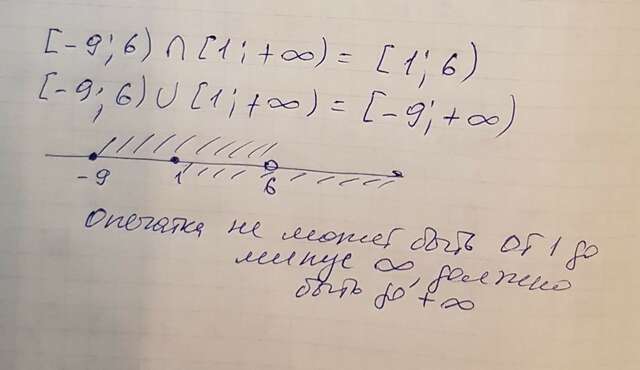 [-9; 6) ∩ [1; +∞) = [1; 6)
[-9; 6) ∪ [1; +∞) = [-9; +∞)
-9 1 6
Опечатка не может быть от 1 до
минус ∞, должно
быть до +∞